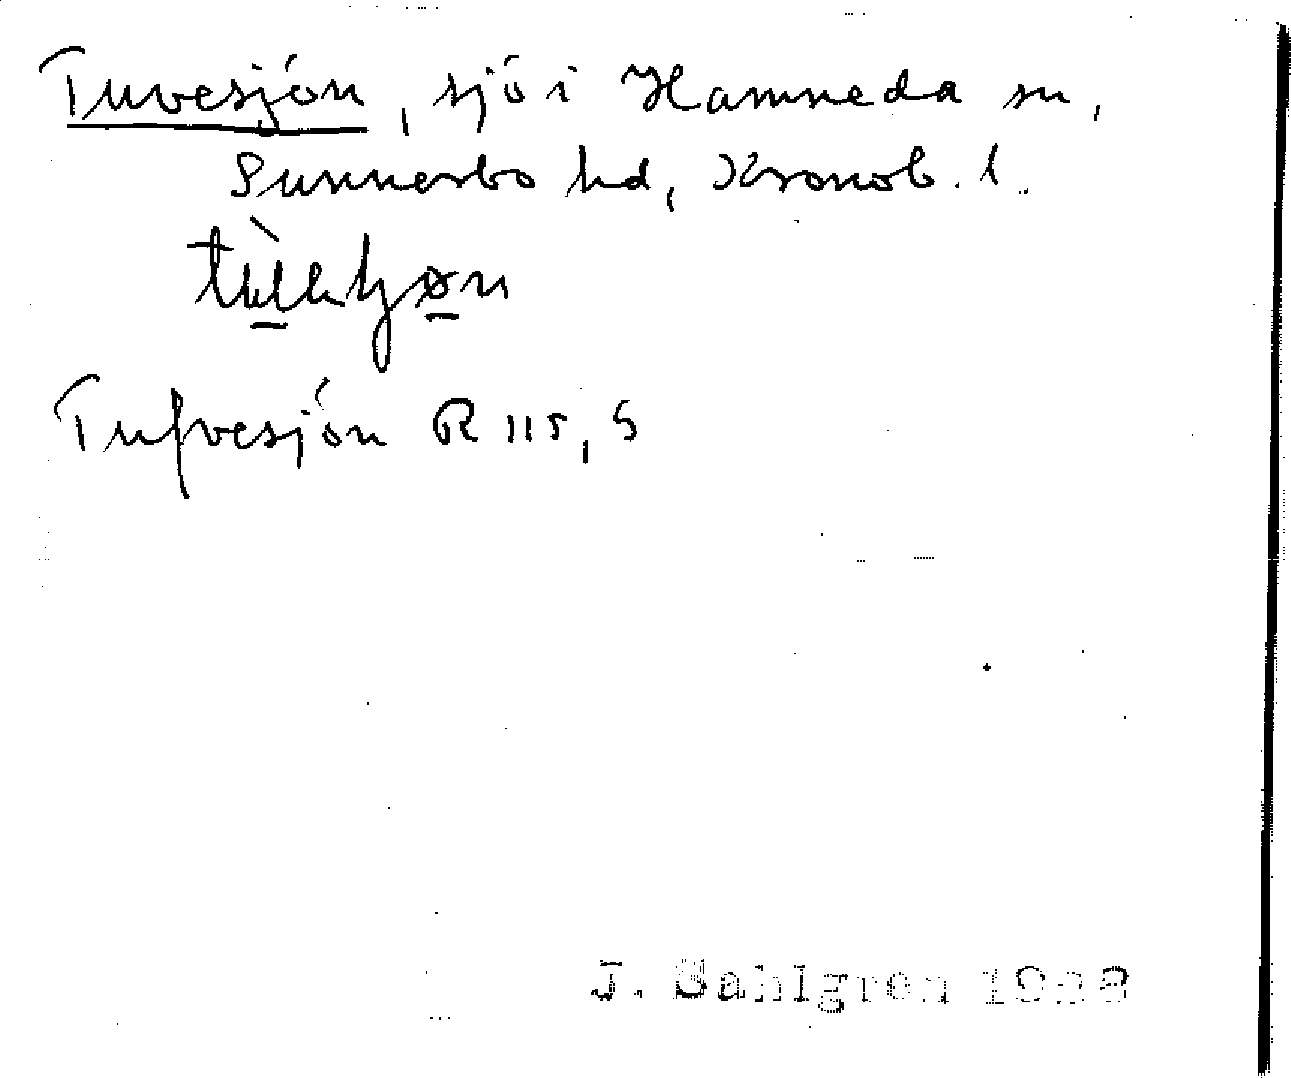 Tuvesjön, sjö i Hamneda sn,
Sunnerbo hd, Kronob. l.
Tufvesjön R 115, 5
J. Sahlgren